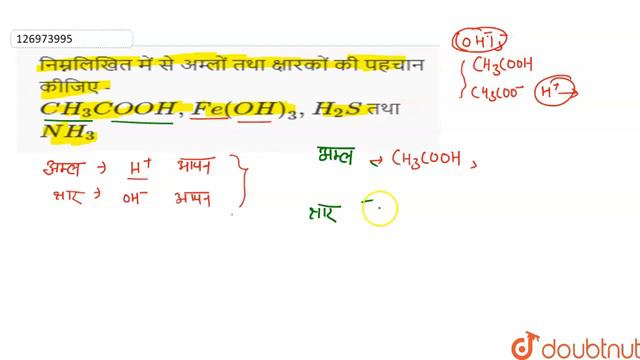 126973995
निम्नलिखित में से अम्लों तथा क्षारकों की पहचान
कीजिए -
CH₃COOH, Fe(OH)₃, H₂S तथा
NH₃
OH⁻,
CH₃COOH
CH₃COO⁻ H⁺→
अम्ल → H⁺ आयन
क्षार → OH⁻ आयन
अम्ल → CH₃COOH,
क्षार -
doubtnut